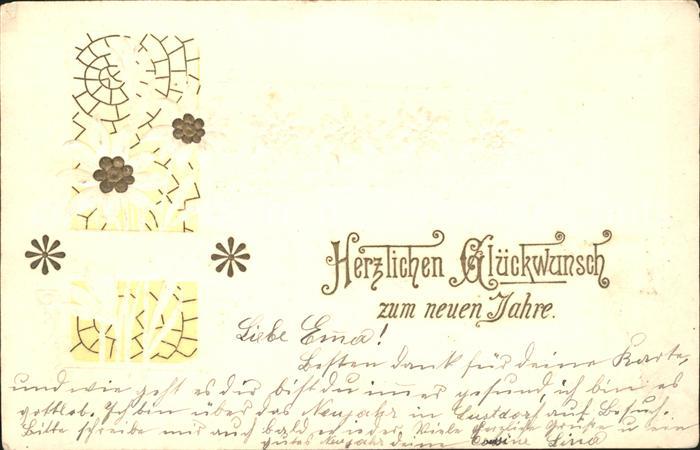 Herzlichen Glückwunsch
zum neuen Jahre.
Liebe Emma!
Besten dank für deine Karte,
und wie geht es dir bist du immer gesund, ich bin es
gottlob. Ich bin über das Neujahr in auf Besuch.
Bitte schreibe mir auch bald wieder. Viele herzliche Grüße u ein
gutes Neujahr deine Cousine Lina